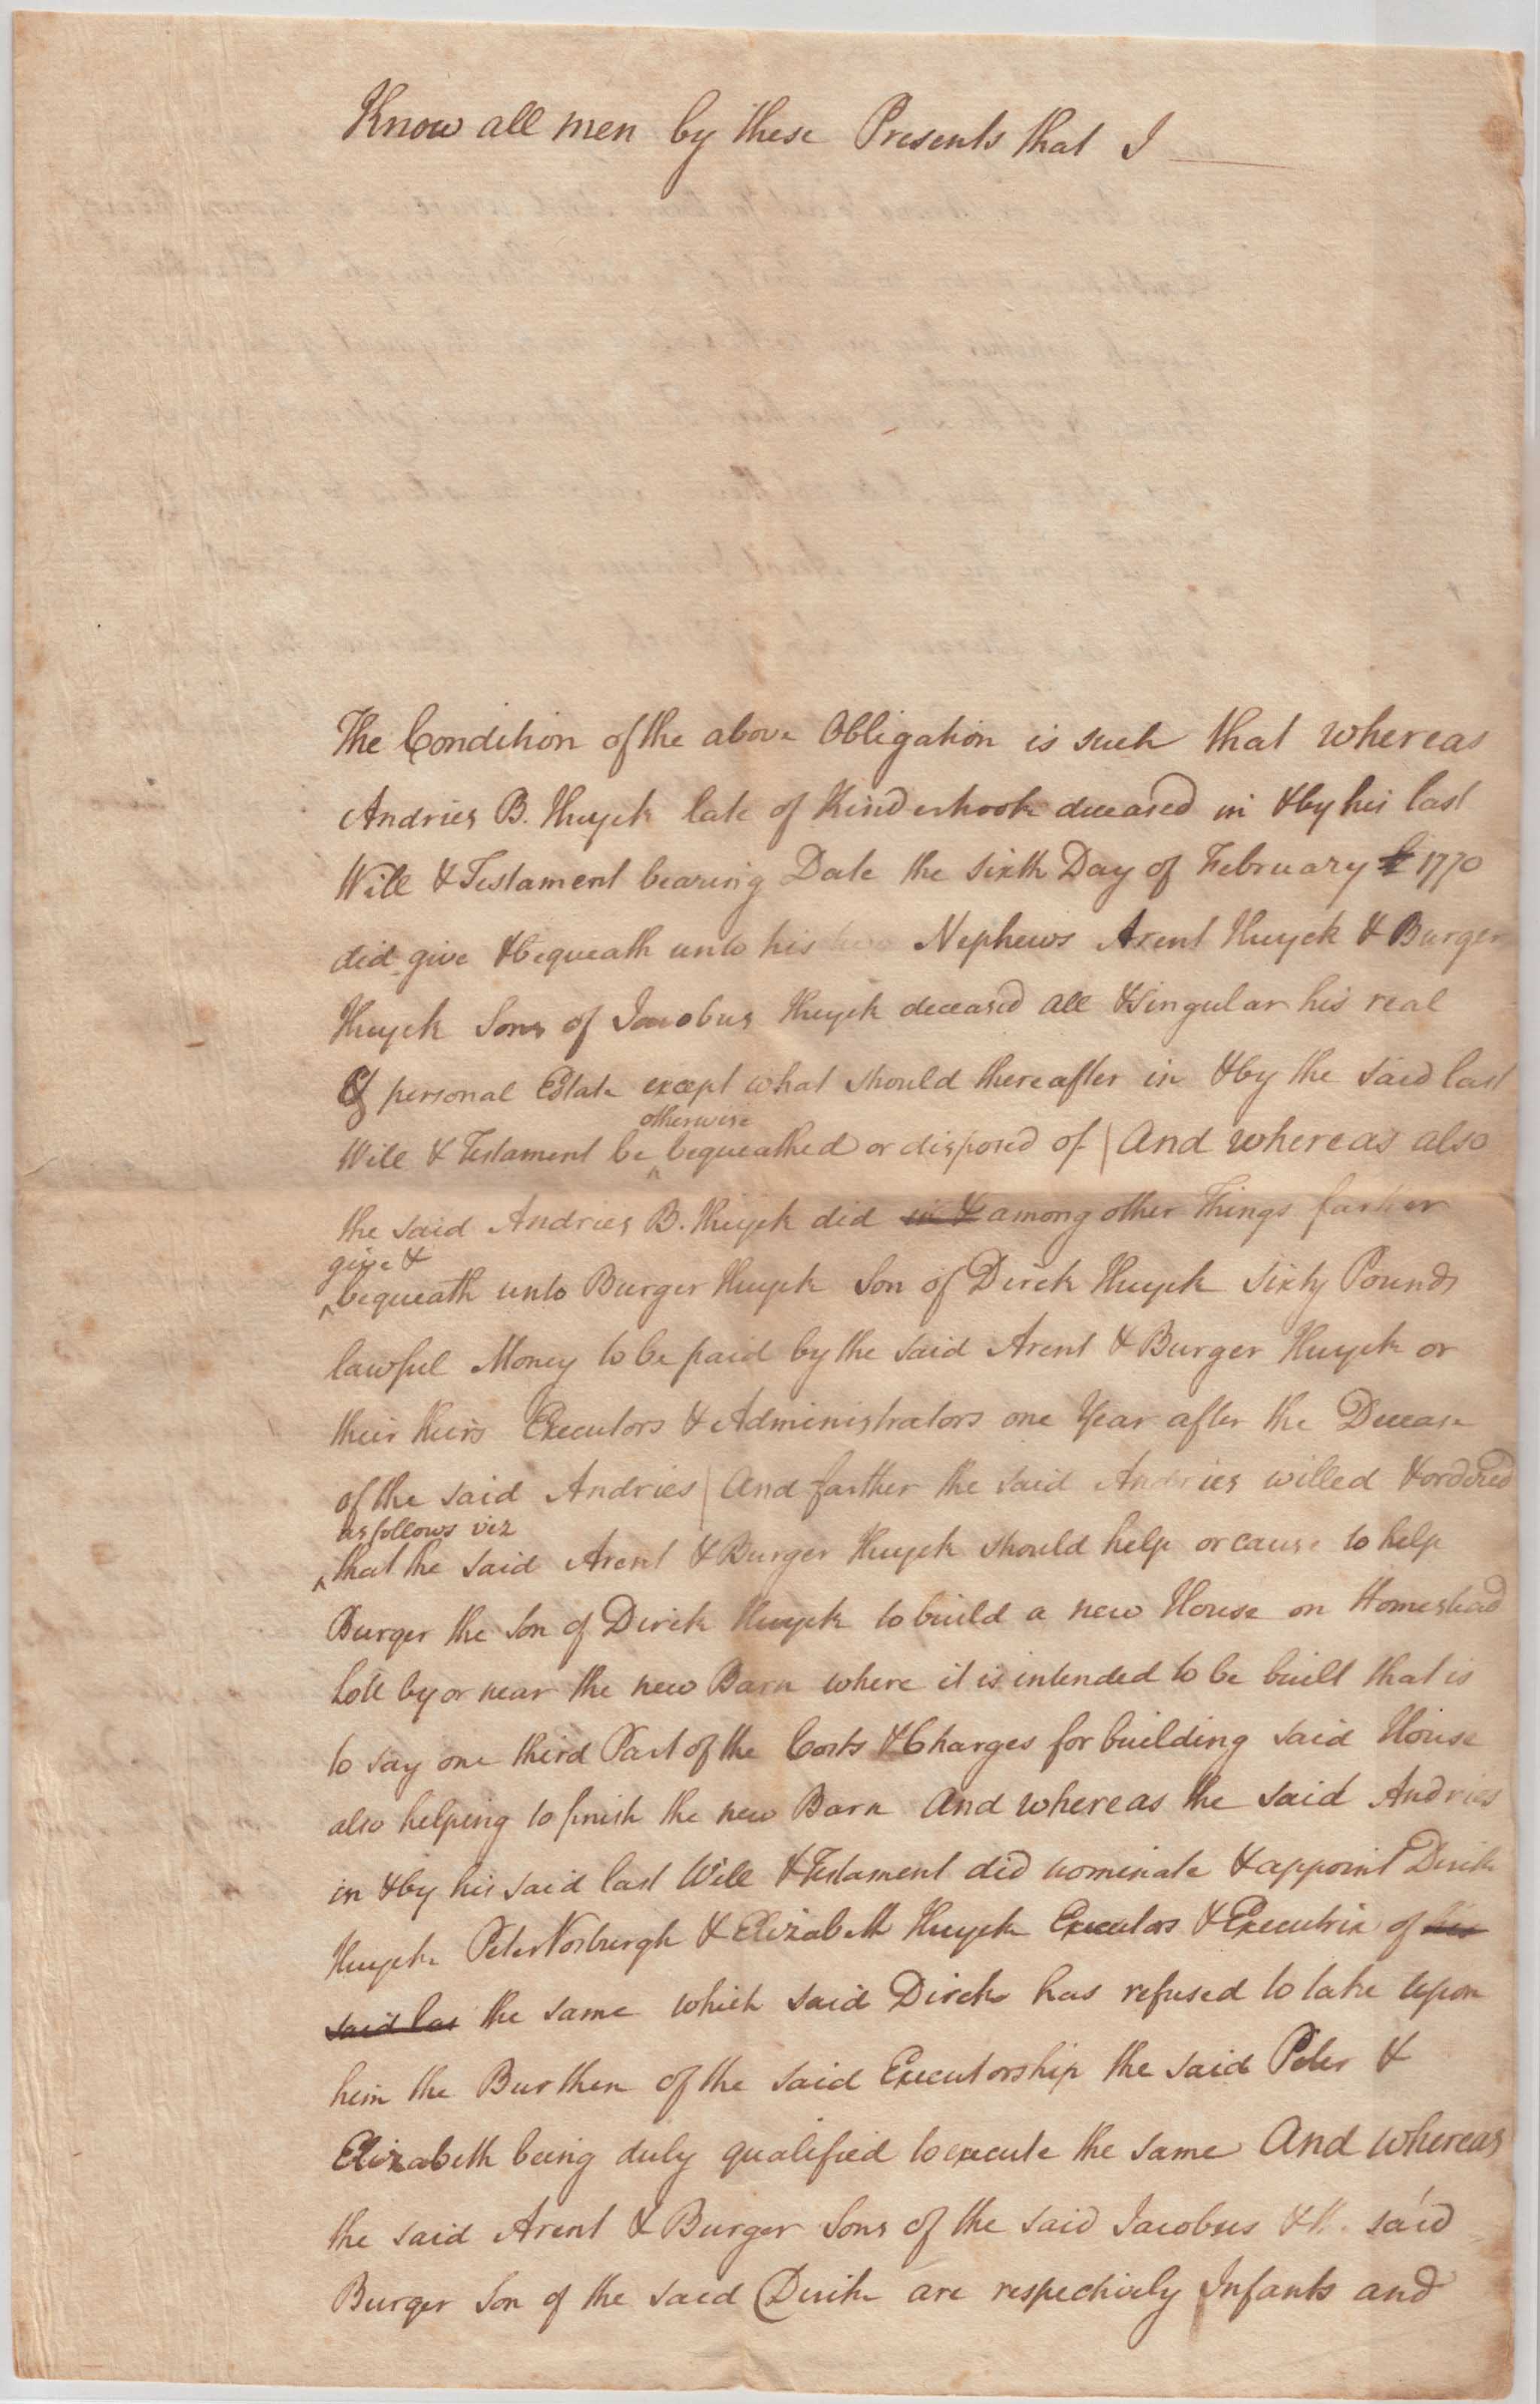 Know all men by these Presents that I
The Condition of the above Obligation is such that whereas
Andries B. Huyck late of Kinderhook deceased in & by his last
Will & Testament bearing Date the sixth Day of February 1770
did give & bequeath unto his two Nephews Arent Huyck & Burger
Huyck Sons of Jacobus Huyck deceased all & singular his real
& personal Estate except what should thereafter in & by the said last
otherwise
Will & Testament be ‸ bequeathed or disposed of | And whereas also
the said Andries B. Huyck did in & among other Things farther
give &
‸ bequeath unto Burger Huyck Son of Dirck Huyck Sixty Pounds
lawful Money to be paid by the said Arent & Burger Huyck or
their Heirs Executors & Administrators one Year after the Decease
of the said Andries | And farther the said Andries willed & ordered
as follows viz
‸ that the said Arent & Burger Huyck should help or cause to help
Burger the Son of Dirck Huyck to build a new House on Homestead
Lott by or near the new Barn where it is intended to be built that is
to say one third Part of the Costs & Charges for building said House
also helping to finish the new Barn And whereas the said Andries
in & by his said last Will & Testament did nominate & appoint Dirck
Huyck Peter Vosburgh & Elizabeth Huyck Executors & Executrix of his
said las the same which said Dirck has refused to take upon
him the Burthen of the said Executorship the said Peter &
Elizabeth being duly qualified to execute the same And whereas
the said Arent & Burger Sons of the said Jacobus & the said
Burger Son of the said Dirck are respectively Infants and